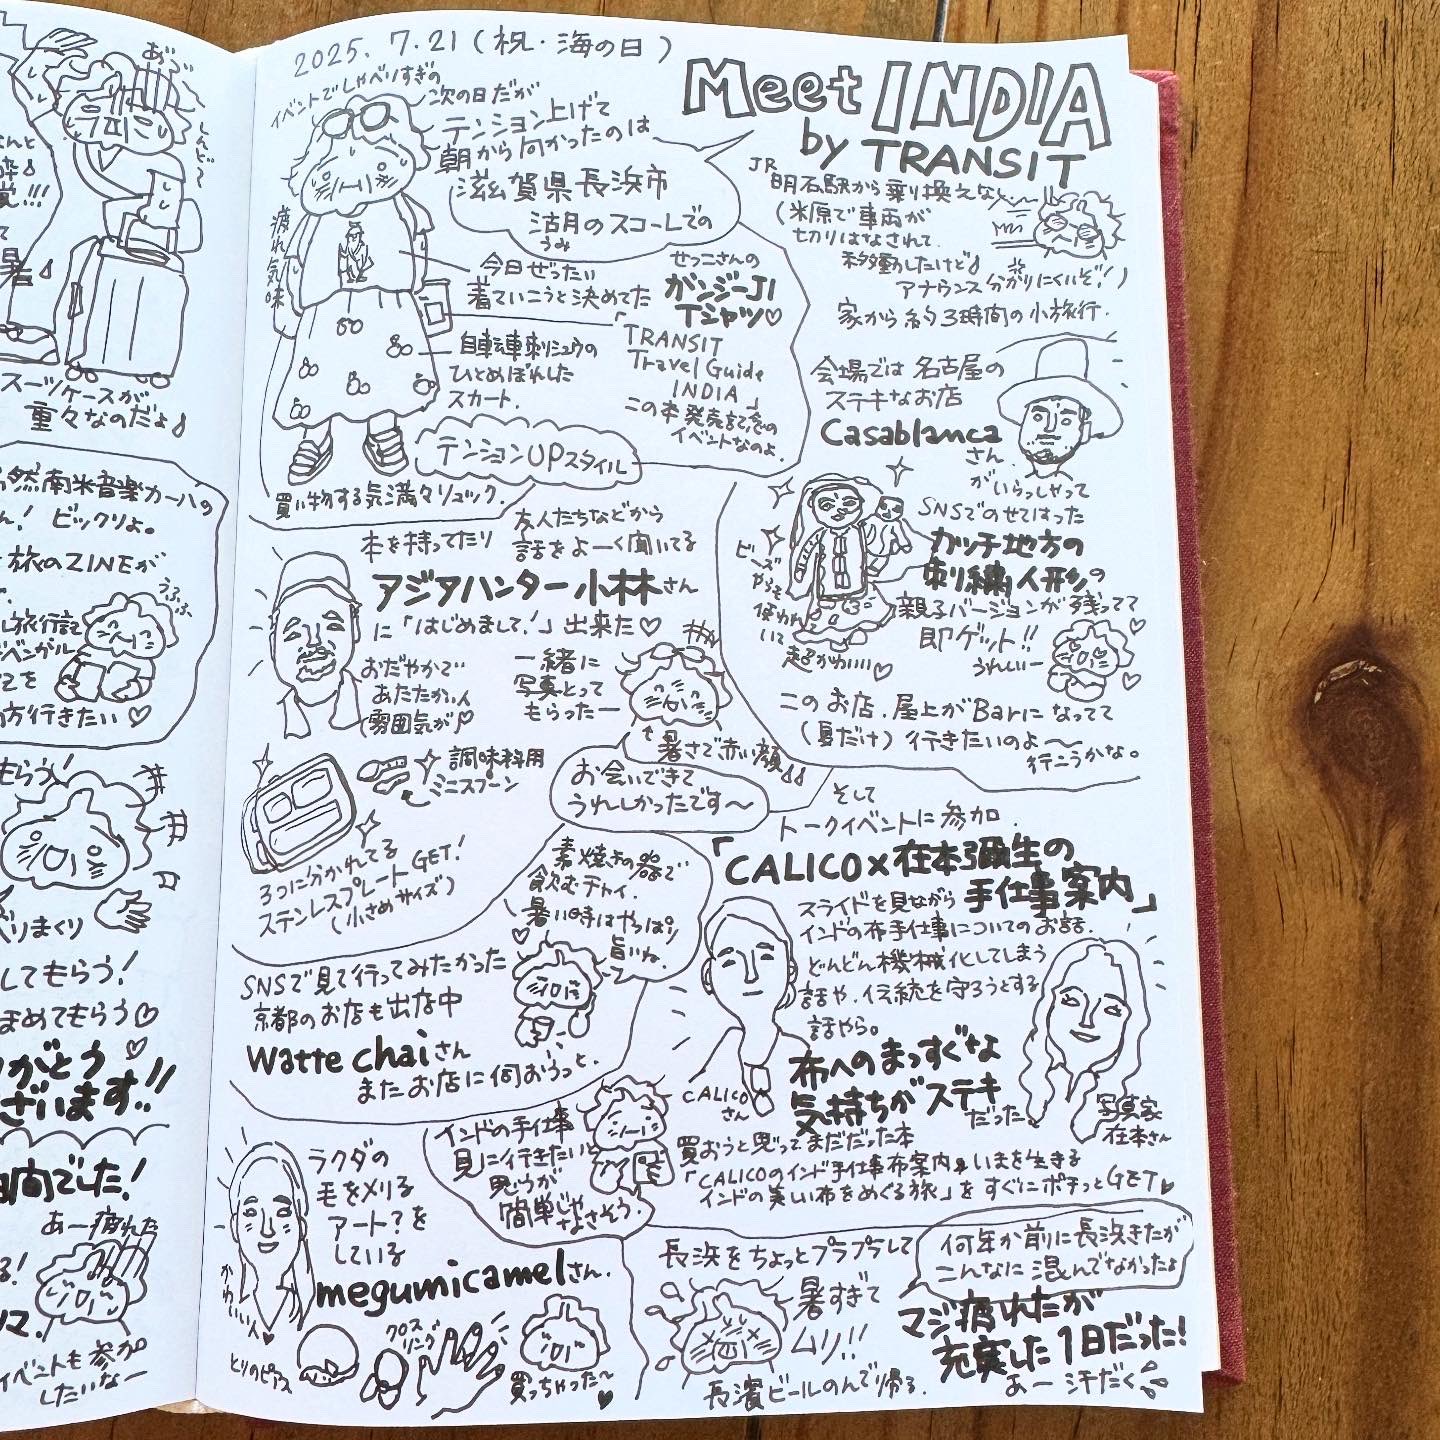 2025. 7.21 (祝・海の日)
Meet INDIA
by TRANSIT
イベントでしゃべりすぎの
次の日だが
テンション上げて
朝から向かったのは
滋賀県長浜市
沽月のスコーレでの
うみ
疲れ気味
今日ぜったい
着ていこうと決めてた
せっこさんの
ガンジーJI
Tシャツ♡
自転車刺シュウの
ひとめぼれした
スカート.
「TRANSIT
Travel Guide
INDIA」
この本発売記念の
イベントなのよ.
テンションUPスタイル
買い物する気満々リュック.
JR
明石駅から乗り換えなし
(米原で車両が
切りはなされて.
移動したけど
アナウンス分かりにくいぞ!)
家から約3時間の小旅行.
会場では名古屋の
ステキなお店
Casablanca
さん
がいらっしゃって
SNSでのせてはった
カッチ地方の
刺繍人形の
親子バージョンが残ってて
即ゲット!!
うれしいー
ビーズ
やらも
使われ
いて
超かわいい♡
このお店.屋上がBarになってて
(夏だけ)行きたいのよ〜
行こうかな。
本を持ってたり
友人たちなどから
話をよーく聞いてる
アジアハンター小林さん
に「はじめまして!」出来た♡
おだやかで
あたたかい
雰囲気が
一緒に
写真とって
もらったー
暑さで赤い顔
お会いできて
うれしかったです〜
調味料用
ミニスプーン
3つに分かれてる
ステンレスプレートGET!
(小さめサイズ)
素焼きの器で
飲むチャイ.
暑い時はやっぱり
旨いね.
SNSで見て行ってみたかった
京都のお店も出店中
watte chaiさん
またお店に伺おうっと.
そして
トークイベントに参加.
「CALICO×在本彌生の
手仕事案内」
スライドを見ながら
インドの布手仕事についてのお話.
どんどん機械化してしまう
話や、伝統を守ろうとする
話やら。
布へのまっすぐな
気持ちがステキ
だった
CALICO
さん
写真家
在本さん
買おうと思ってまだだった本
「CALICOのインド手仕事布案内 いまを生きる
インドの美しい布をめぐる旅」をすぐにポチっとGET♥
インドの手仕事
見に行きたいと
思うが
簡単じゃ
なさそう.
ラクダの
毛をメリる
アート?を
している
megumicamelさん.
かわいい人♥
とりのピアス
クロス
リング
買っちゃった〜
♥
長浜をちょっとプラプラして
暑すぎて
ムリ!!
長濱ビールのんで帰る.
何年か前に長浜きたが
こんなに混んでなかったよ
マジ疲れたが
充実した1日だった!
あー汗だく
しんどくて
スーツケースが
重々なのだよ
南米音楽カーハの
ん! ビックリよ。
旅のZINEが
し旅行記
ベンガル
うふふ
方行きたい♡
もらう!
べりまくり
してもらう!
まめてもらう♡
りがとう
ざいます!!
間でした!
あー疲れた
イベントも参加
したいなー